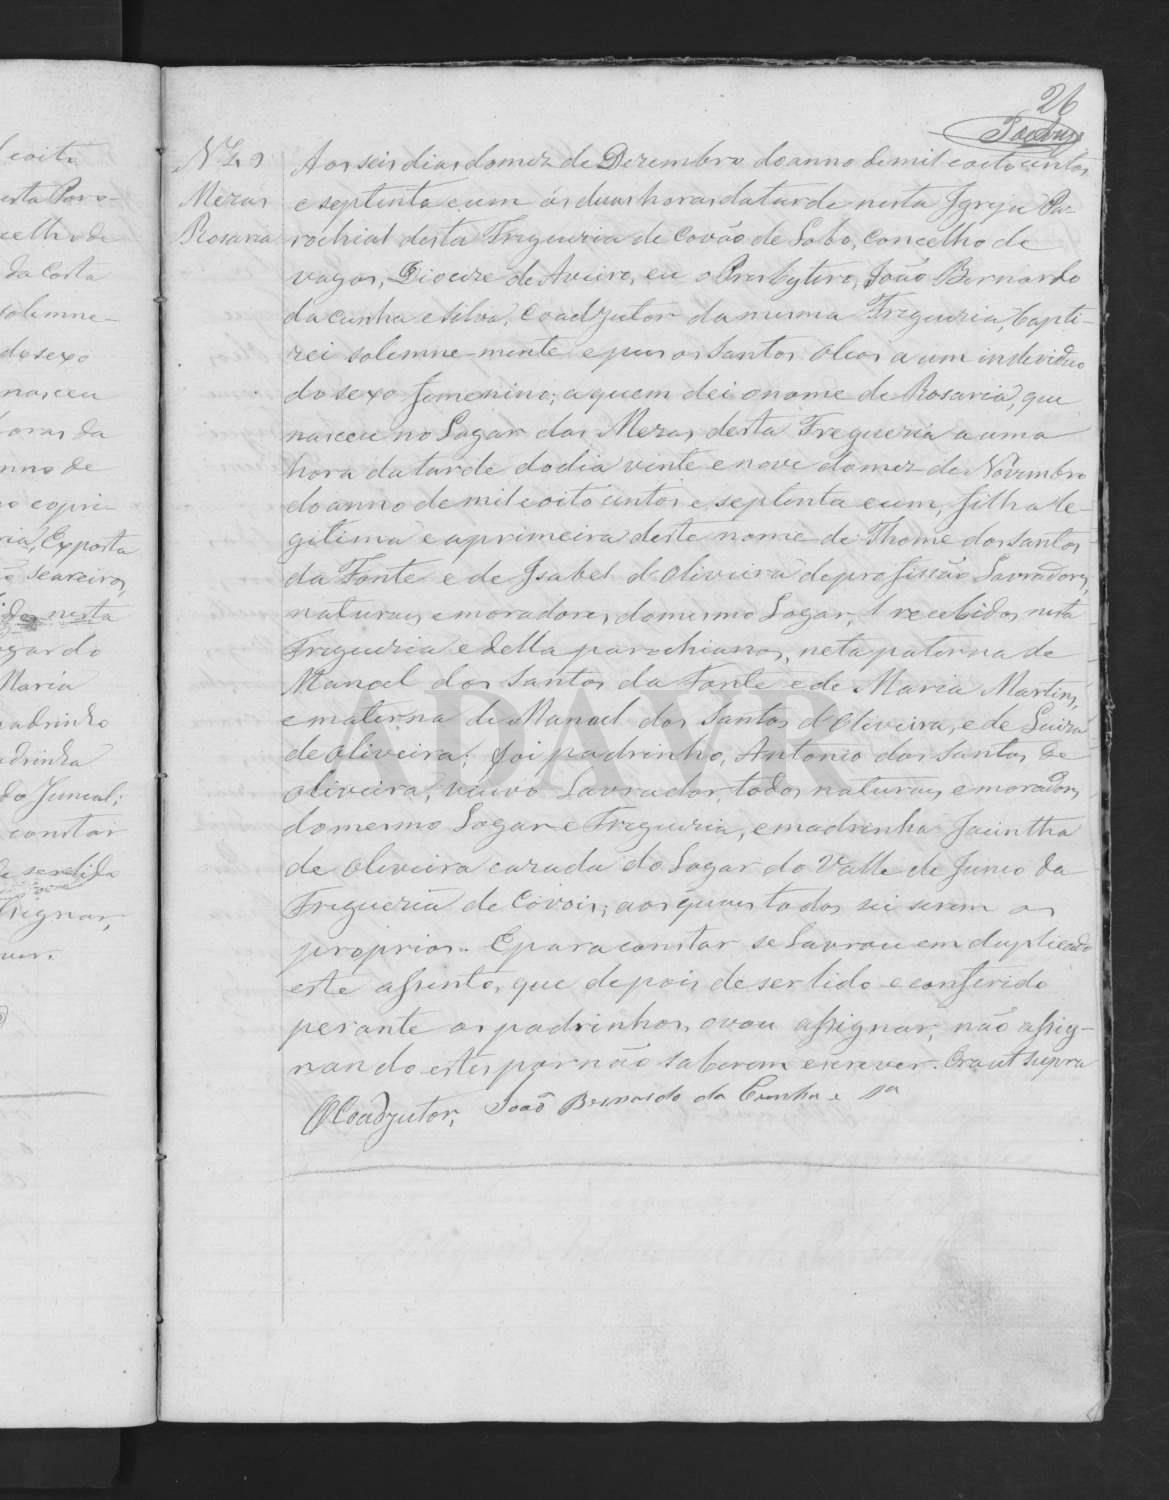 26
Nº 49
Mezas
Rosaria
Aos seis dias do mez de Dezembro do anno de mil e oito centos
e septenta e um ás duas horas da tarde nesta Igreja Pa-
rochial desta Freguezia de Covão de Lobo, Concelho de
Vagos, Dioceze de Aveiro, eu o Presbytero, João Bernardo
da Cunha e Silva, Coadjutor da mesma Freguezia, bapti-
zei solemne-mente e pus os Santos oleos a um individuo
do sexo femenino; a quem dei o nome de Rosaria, que
nasceu no Lugar das Mezas, desta Freguezia a uma
hora da tarde do dia vinte e nove do mez de Novembro
do anno de mil e oito centos e septenta e um, filha le-
gitima e a primeira deste nome de Thome dos Santos
da Fonte e de Isabel d'Oliveira de profissão Lavradores,
naturaes e moradores do mesmo Logar, recebidos nesta
Freguezia e della parochianos, neta paterna de
Manoel dos Santos da Fonte e de Maria Martins,
e materna de Manoel dos Santos d'Oliveira, e de Luiza
de Oliveira; foi padrinho, Antonio dos Santos de
Oliveira, viuvo Lavrador, todos naturaes e moradores
do mesmo Logar e Freguezia, e madrinha Jacintha
de Oliveira cazada do Lugar do Valle de Junco da
Freguezia de Covois; aos quaes todos sei serem os
proprios. E para constar se Lavrou em duplicado
este assento, que depois de ser lido e conferido
perante os padrinhos, o vou assignar, não assig-
nando estes por não saberem escrever. Era ut supra
O Coadjutor, João Bernardo da Cunha e Sª
ADAVR